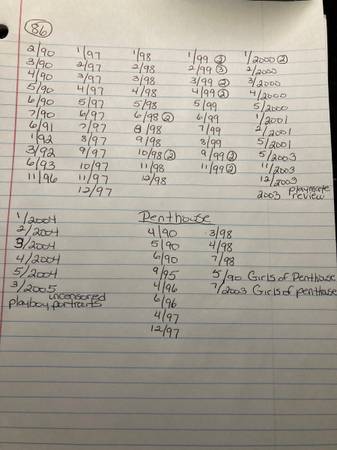 86
2/90 1/97 1/98 1/99 ② 1/2000 ②
3/90 2/97 2/98 2/99 ③ 2/2000
4/90 3/97 3/98 3/99 ② 3/2000
5/90 4/97 4/98 4/99 ② 4/2000
6/90 5/97 5/98 5/99 5/2000
7/90 6/97 6/98 ② 6/99 1/2001
6/91 7/97 8/98 7/99 2/2001
1/92 8/97 9/98 8/99 5/2001
3/92 9/97 10/98 ② 9/99 ② 5/2003
6/93 10/97 11/98 11/99 ② 11/2003
11/96 11/97 12/98 12/2003
12/97 2003 playmate review
1/2004 Penthouse
2/2004 4/90 3/98
3/2004 5/90 4/98
4/2004 6/90 7/98
5/2004 9/95 5/90 Girls of Penthouse
3/2005 4/96 7/2003 Girls of penthouse
uncensored
playboy portraits 6/96
4/97
12/97